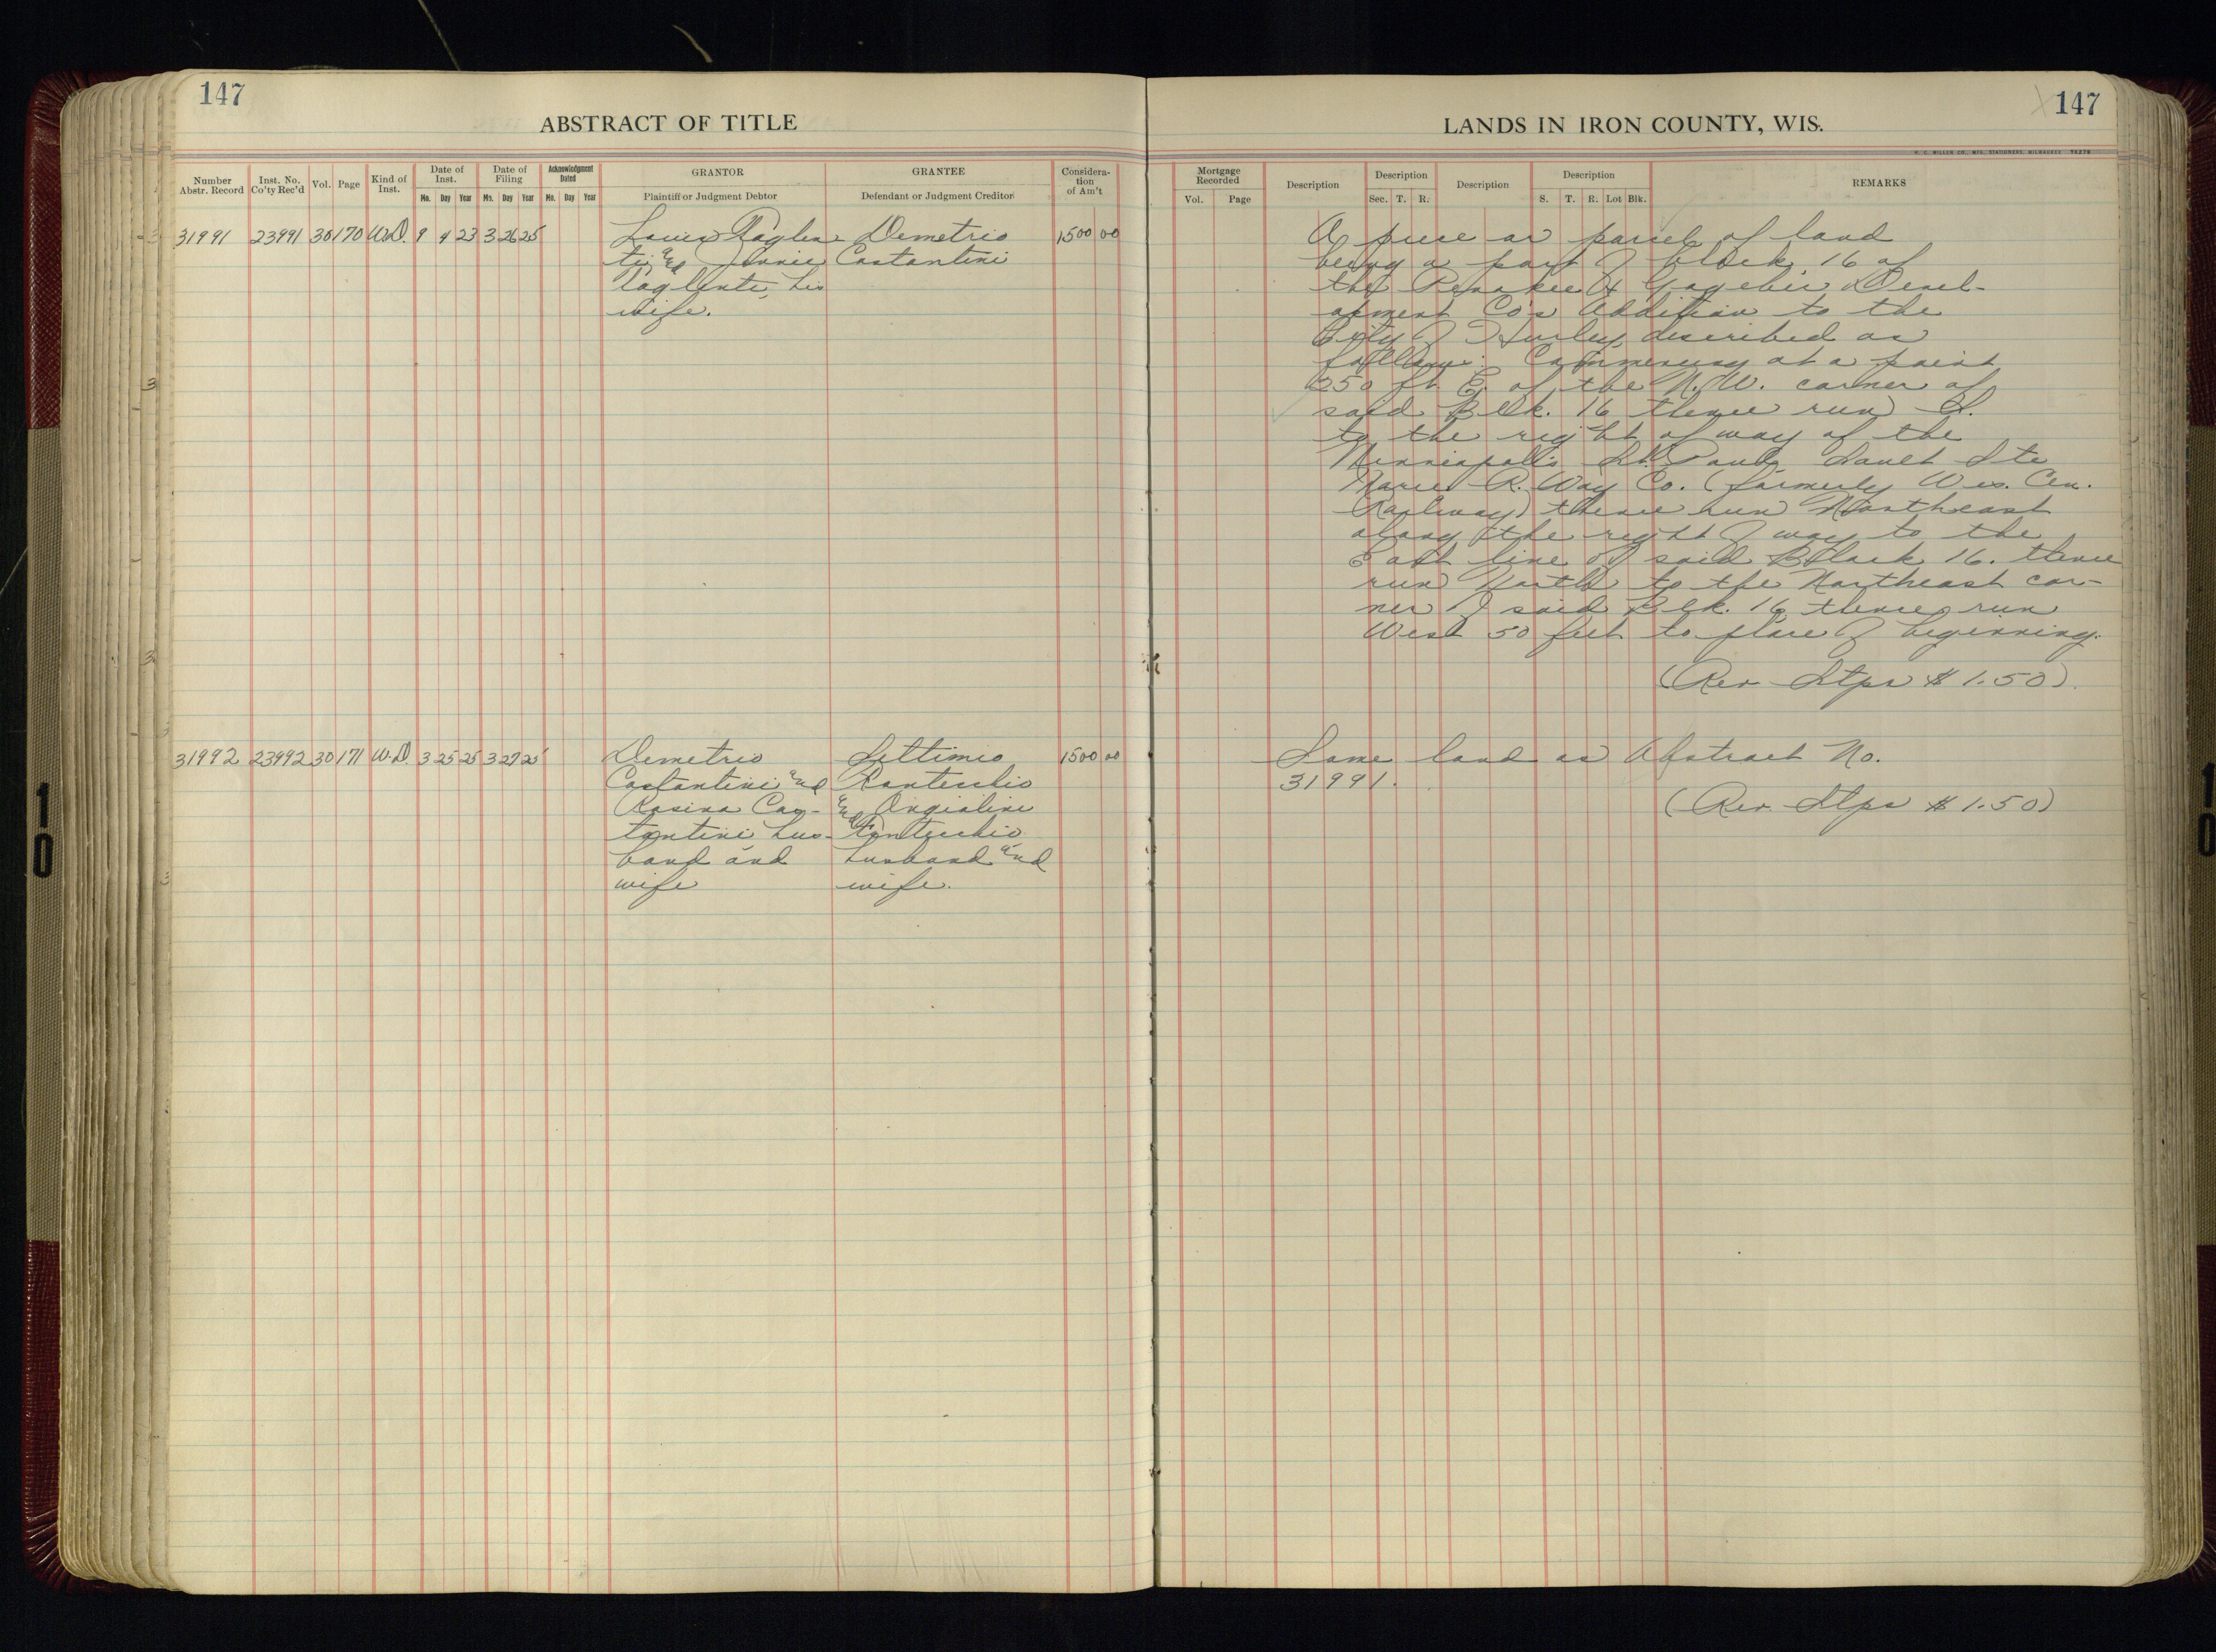 147
ABSTRACT OF TITLE
Number Abstr. Record | Inst. No. Co'ty Rec'd | Vol. | Page | Kind of Inst. | Date of Inst. Mo. Day Year | Date of Filing Mo. Day Year | Acknowledgment Dated Mo. Day Year | GRANTOR Plaintiff or Judgment Debtor | GRANTEE Defendant or Judgment Creditor | Consideration of Am't
31991 23991 30 170 W.D. 9 4 23 3 26 25 Louis Paglen- Demetrio 1500 00
ti and Jennie Costantini
Paglenti, his
wife.
31992 23992 30 171 W.D. 3 25 25 3 27 25 Demetrio Settimio 1500 00
Costantini and Pontecchio
Rosina Cos- and Angioline
tantini hus- Pontecchio
band and husband and
wife wife.
147
LANDS IN IRON COUNTY, WIS.
H. C. MILLER CO., MFG. STATIONERS, MILWAUKEE
Mortgage Recorded Vol. Page | Description | Description Sec. T. R. | Description | Description S. T. R. Lot Blk. | REMARKS
A piece or parcel of land
being a part of block 16 of
the Penokee & Gogebic Devel-
opment Co's Addition to the
City of Hurley, described as
follows: Commencing at a point
250 ft E. of the N.W. corner of
said Blk. 16 thence run S.
to the right of way of the
Minneapolis St. Paul Sault Ste
Marie R. Way Co. (formerly Wis. Cen.
Railway) thence run Northeast
along the right of way to the
East line of said Block 16. thence
run North to the Northeast cor-
ner of said Blk. 16 thence run
West 50 feet to place of beginning.
(Rev. Stps $1.50)
Same land as Abstract No.
31991.
(Rev. Stps $1.50)